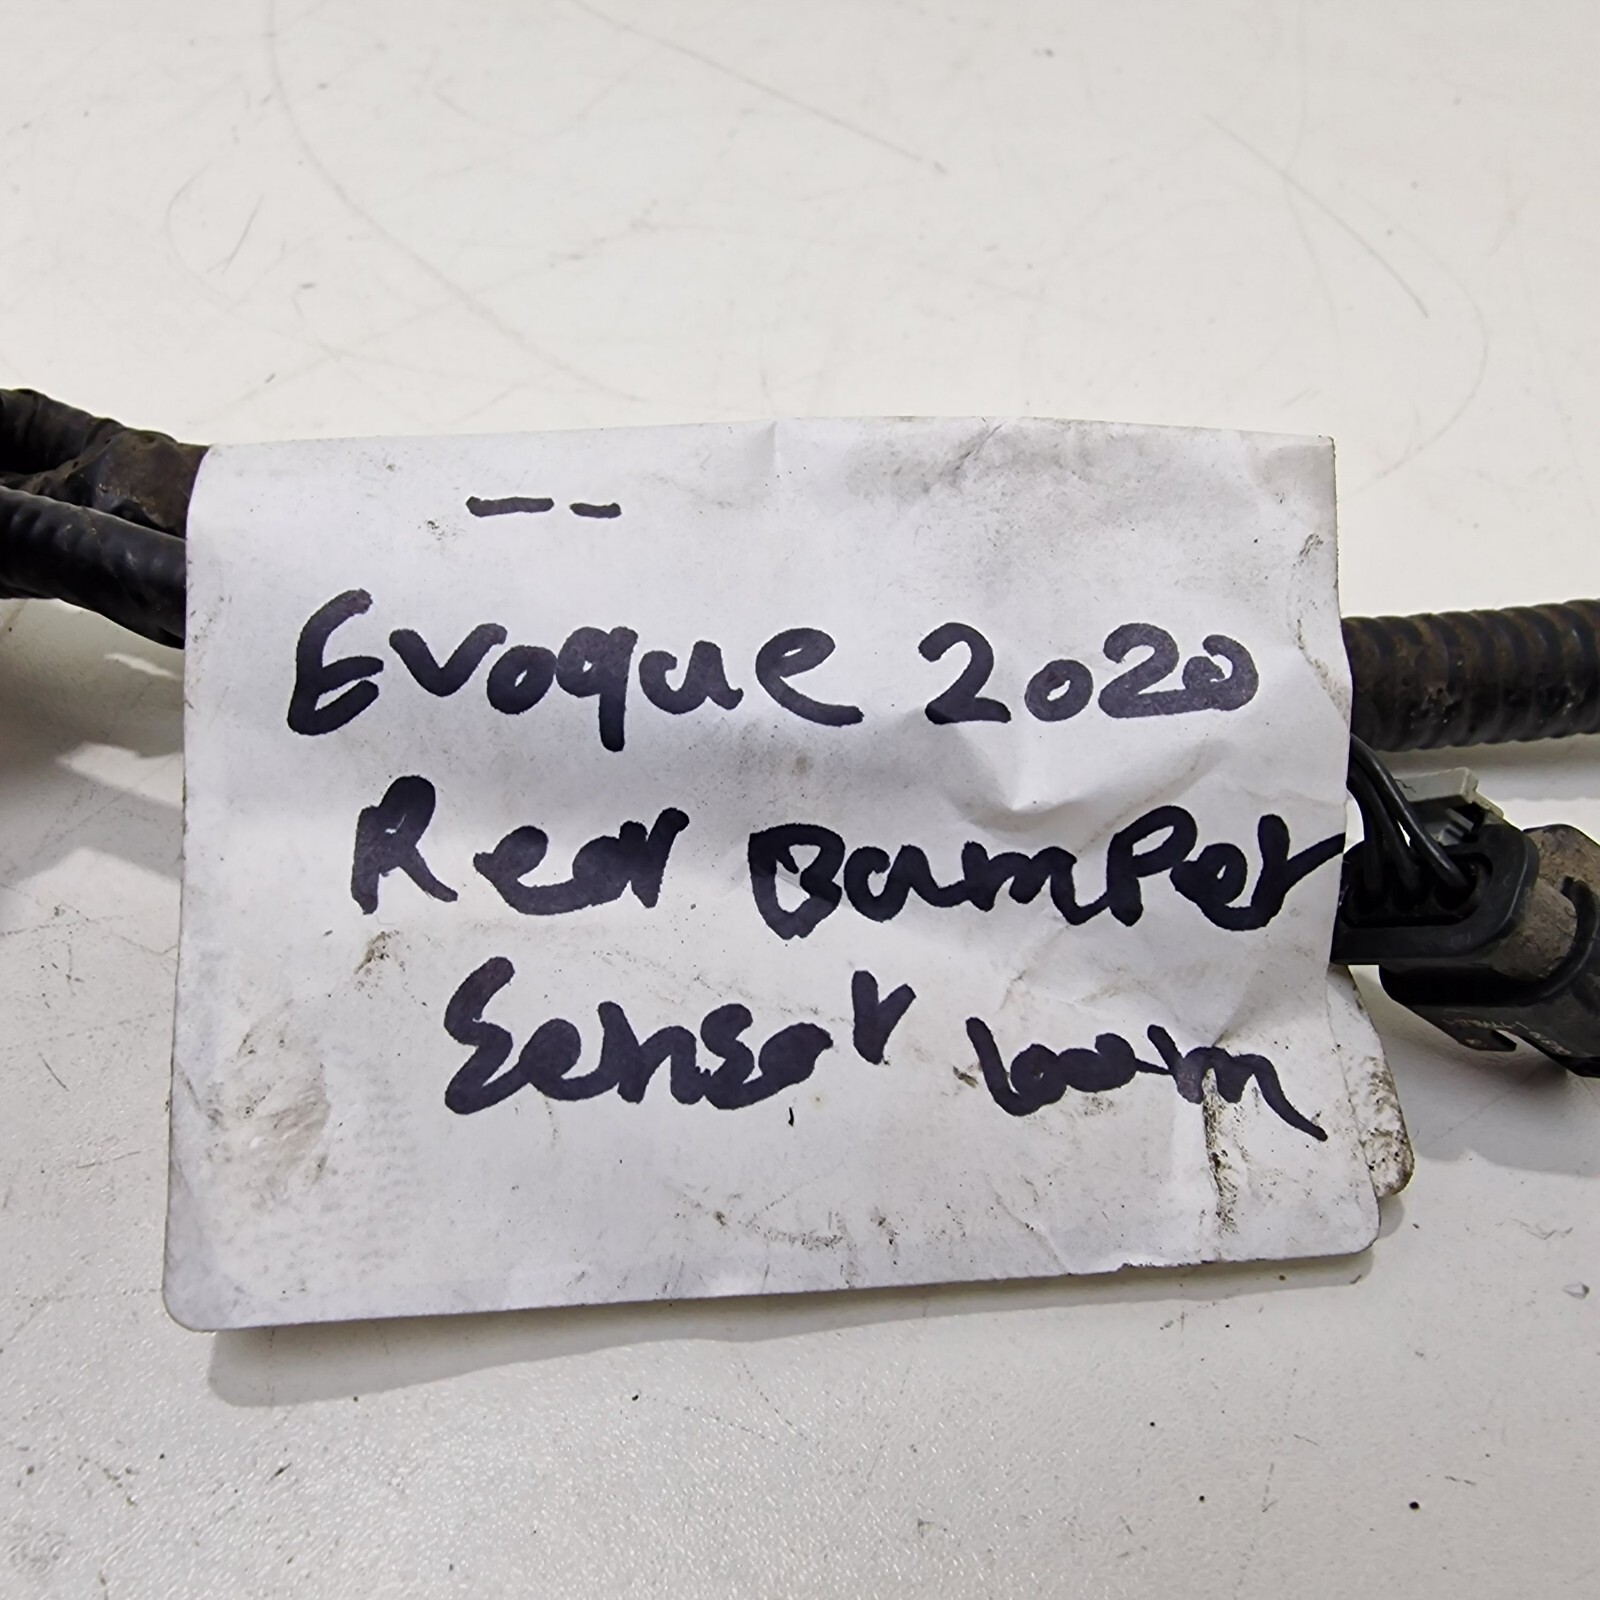 --
Evoque 2020
Rear Bumper
Sensor loom